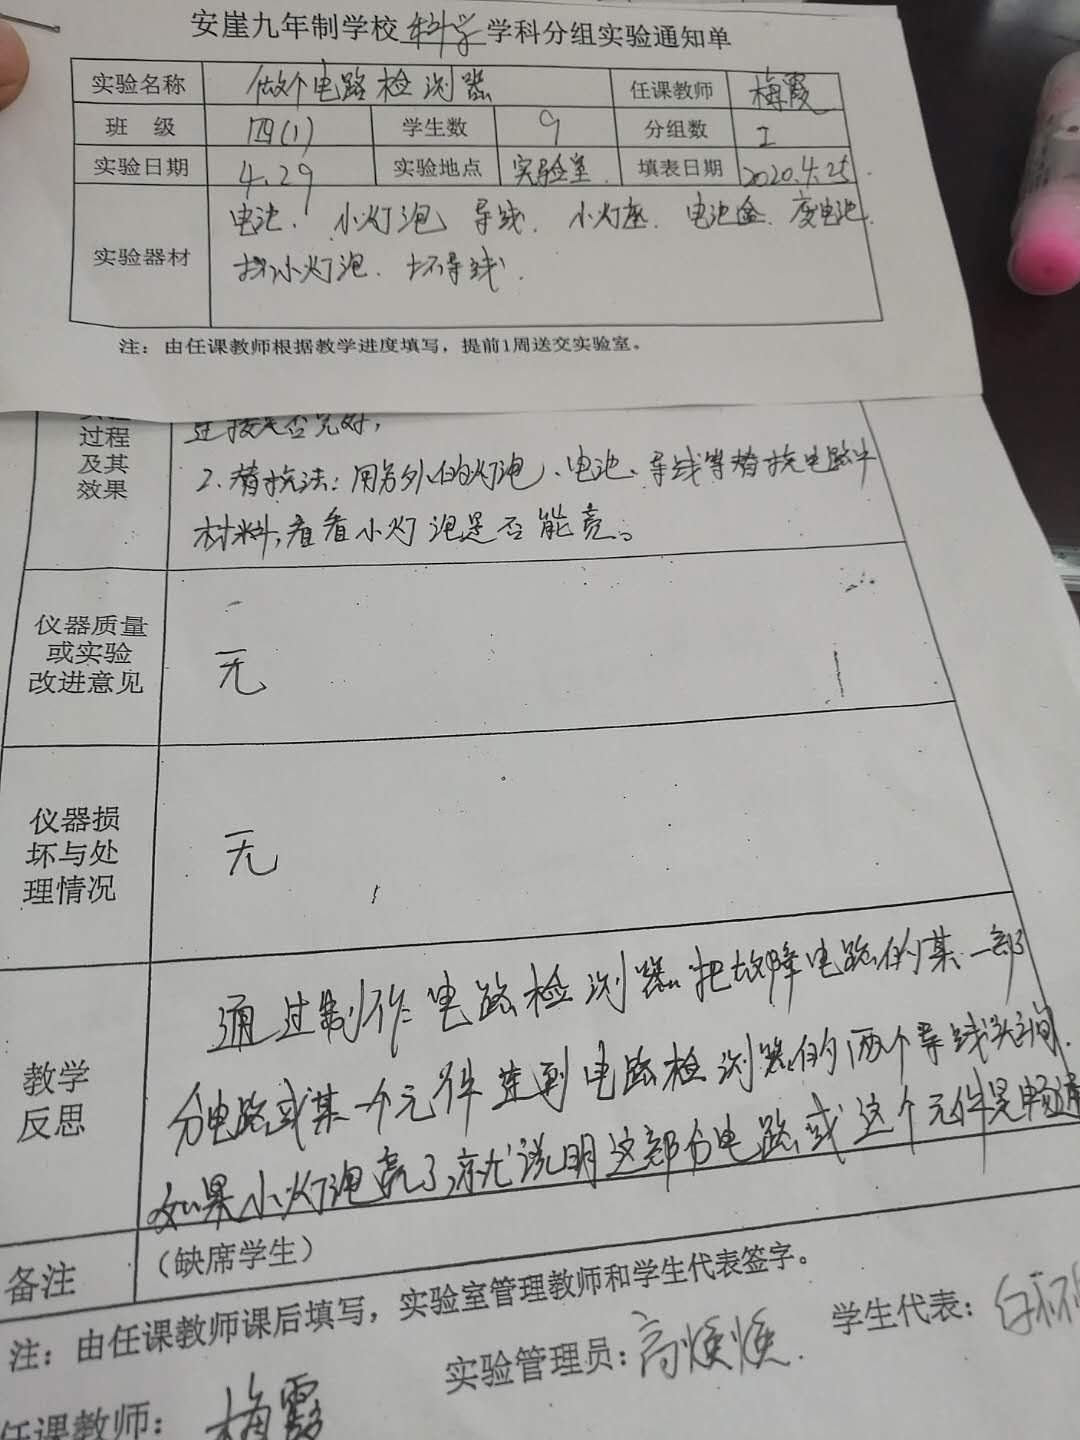 安崖九年制学校科学学科分组实验通知单
实验名称 做个电路检测器 任课教师 梅霞
班 级 四(1) 学生数 9 分组数
实验日期 4.29 实验地点 实验室. 填表日期 2020.4.25
实验器材
电池、小灯泡 导线. 小灯座. 电池盒. 废电池.
坏小灯泡. 坏导线.
注：由任课教师根据教学进度填写，提前1周送交实验室。
过程
及其
效果
连接是否完好，
2.替换法：用另外的灯泡、电池、导线等替换电路中
材料，看看小灯泡是否能亮。
仪器质量
或实验
改进意见
无
仪器损
坏与处
理情况
无
教学
反思
通过制作电路检测器 把故障电路的某一部
分电路或某个元件连到电路检测器的两个导线头之间.
如果小灯泡亮了,就说明这部分电路或这个元件是畅通
备注 （缺席学生）
注：由任课教师课后填写，实验室管理教师和学生代表签字。
任课教师：梅霞 实验管理员：高焕焕. 学生代表：